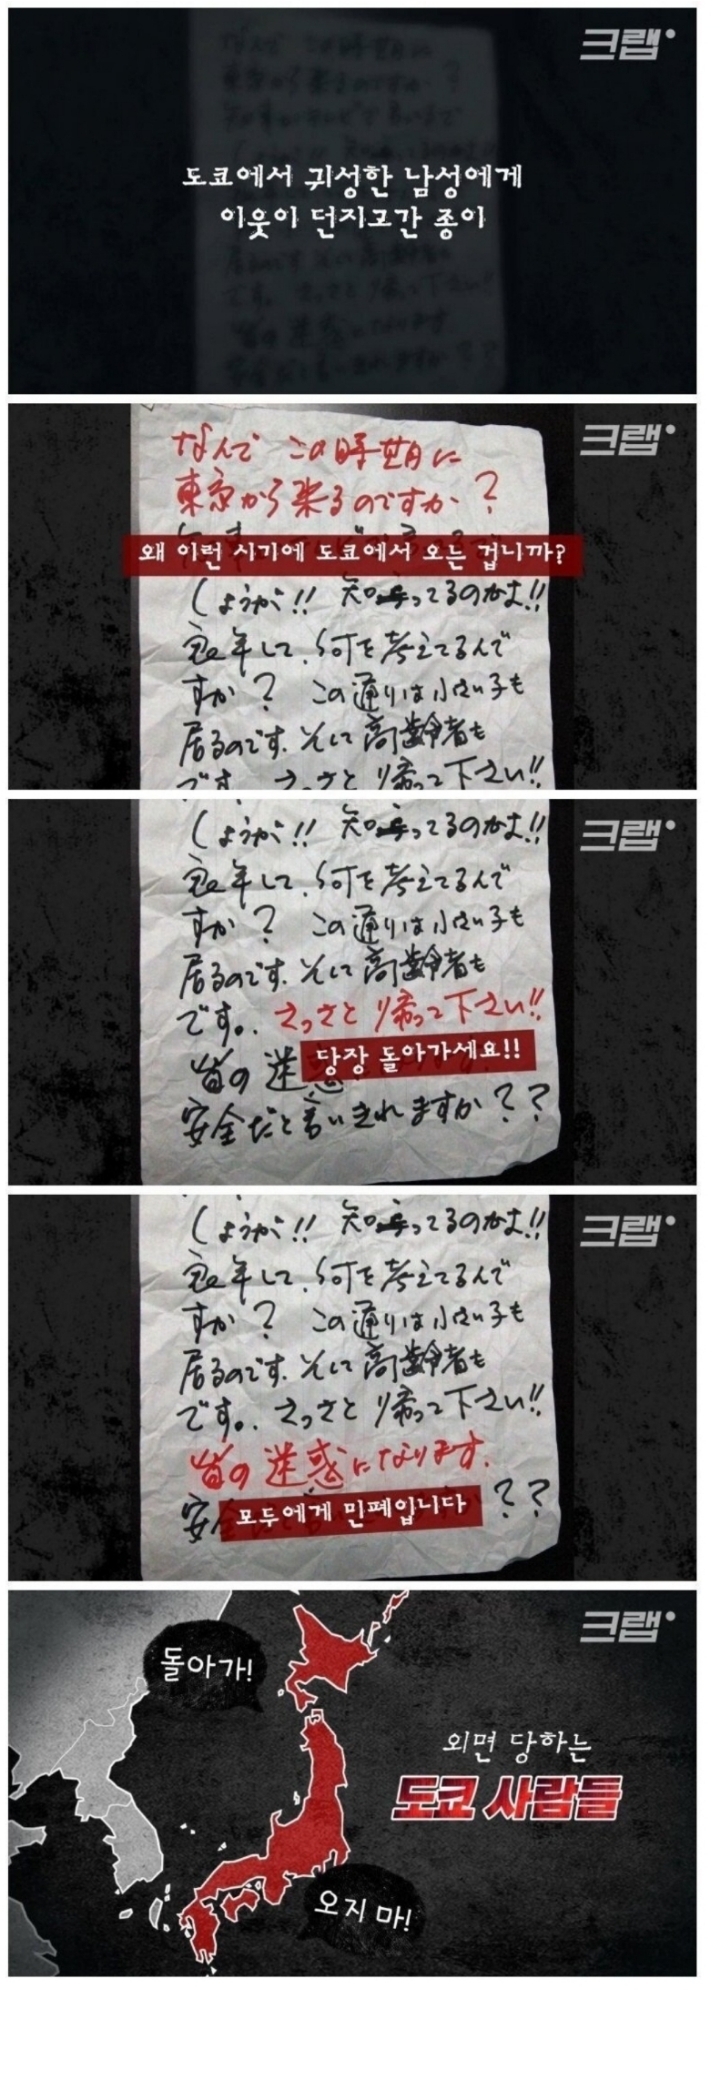 크랩
도쿄에서 귀성한 남성에게
이웃이 던지고간 종이
크랩
なんで この時期に
東京から来るのですか?
왜 이런 시기에 도쿄에서 오는 겁니까?
しょうが!! 知ってるのかよ!!
良い年して、何を考えてるんで
すか? この通りは小さい子も
居るのです。そして高齢者も
です。さっさと帰って下さい!!
크랩
しょうが!! 知ってるのかよ!!
良い年して、何を考えてるんで
すか? この通りは小さい子も
居るのです。そして高齢者も
です。さっさと帰って下さい!!
당장 돌아가세요!!
皆の迷惑
安全だと言いきれますか??
크랩
しょうが!! 知ってるのかよ!!
良い年して、何を考えてるんで
すか? この通りは小さい子も
居るのです。そして高齢者も
です。さっさと帰って下さい!!
皆の迷惑になります。
安 ??
모두에게 민폐입니다
크랩
돌아가!
외면 당하는
도쿄 사람들
오지 마!